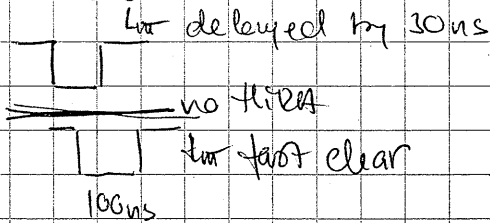 delayed by 30ns
no HiRA
fast clear
100ns